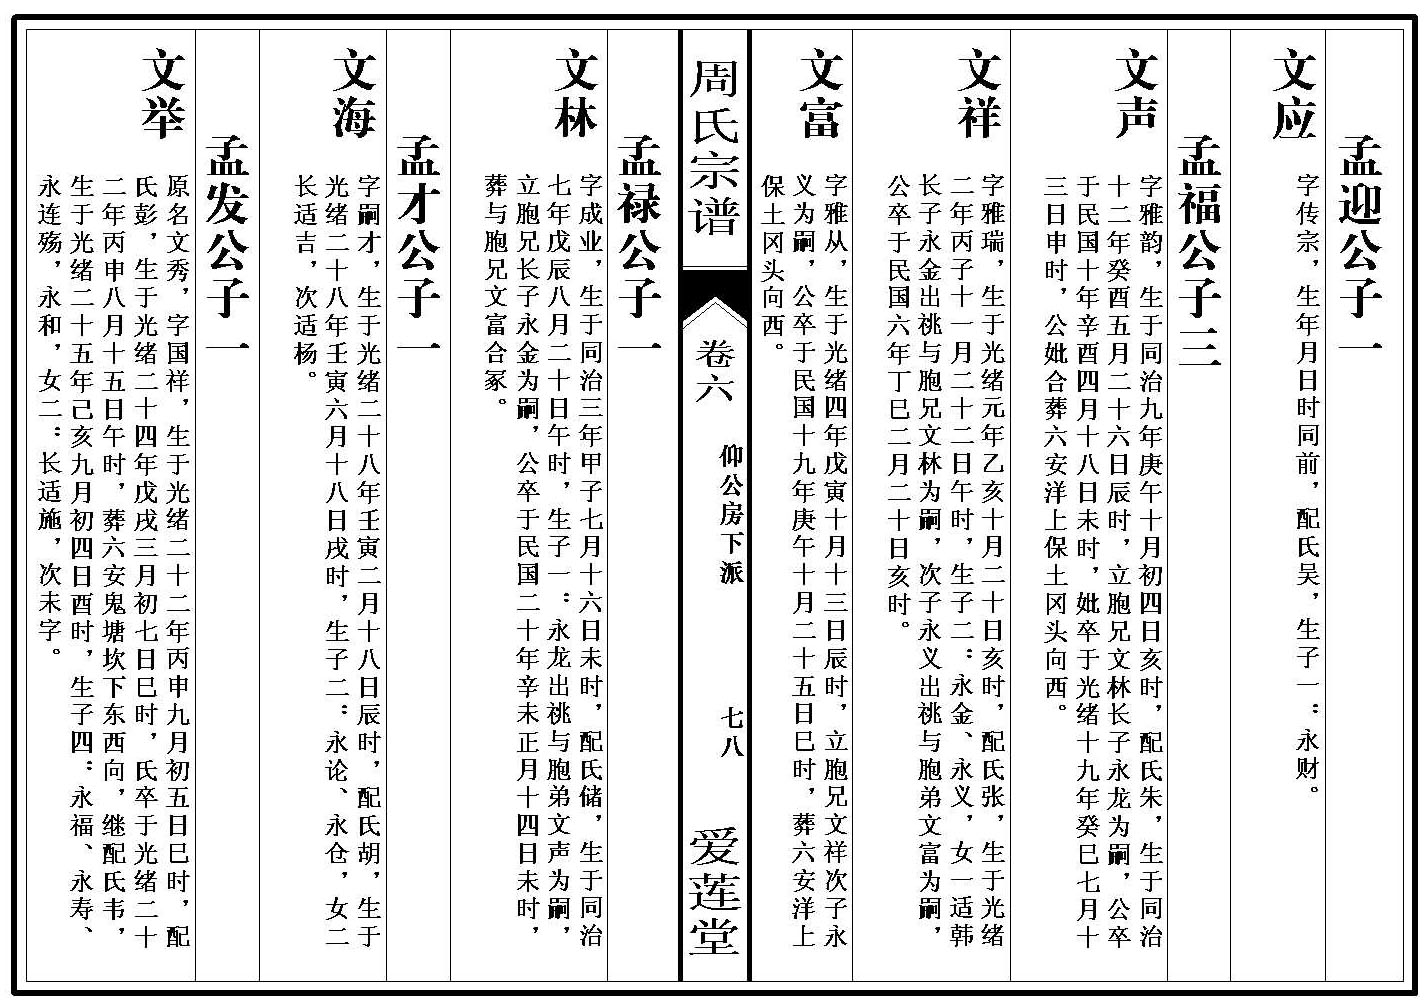 孟迎公子一
文应
字传宗，生年月日时同前，配氏吴，生子一：永财。
孟福公子三
文声
字雅韵，生于同治九年庚午十月初四日亥时，配氏朱，生于同治
十二年癸酉五月二十六日辰时，立胞兄文林长子永龙为嗣，公卒
于民国十年辛酉四月十八日未时，妣卒于光绪十九年癸巳七月十
三日申时，公妣合葬六安洋上保土冈头向西。
文祥
字雅瑞，生于光绪元年乙亥十月二十日亥时，配氏张，生于光绪
二年丙子十一月二十二日午时，生子二：永金、永义，女一适韩
长子永金出祧与胞兄文林为嗣，次子永义出祧与胞弟文富为嗣，
公卒于民国六年丁巳二月二十日亥时。
文富
字雅从，生于光绪四年戊寅十月十三日辰时，立胞兄文祥次子永
义为嗣，公卒于民国十九年庚午十月二十五日巳时，葬六安洋上
保土冈头向西。
周氏宗谱
卷六
仰公房下派
七八
爱莲堂
孟禄公子一
文林
字成业，生于同治三年甲子七月十六日未时，配氏储，生于同治
七年戊辰八月二十日午时，生子一：永龙出祧与胞弟文声为嗣，
立胞兄长子永金为嗣，公卒于民国二十年辛未正月十四日未时，
葬与胞兄文富合冢。
孟才公子一
文海
字嗣才，生于光绪二十八年壬寅二月十八日辰时，配氏胡，生于
光绪二十八年壬寅六月十八日戌时，生子二：永论、永仓，女二
长适吉，次适杨。
孟发公子一
文举
原名文秀，字国祥，生于光绪二十二年丙申九月初五日巳时，配
氏彭，生于光绪二十四年戊戌三月初七日巳时，氏卒于光绪二十
二年丙申八月十五日午时，葬六安鬼塘坎下东西向，继配氏韦，
生于光绪二十五年己亥九月初四日酉时，生子四：永福、永寿、
永连殇，永和，女二：长适施，次未字。